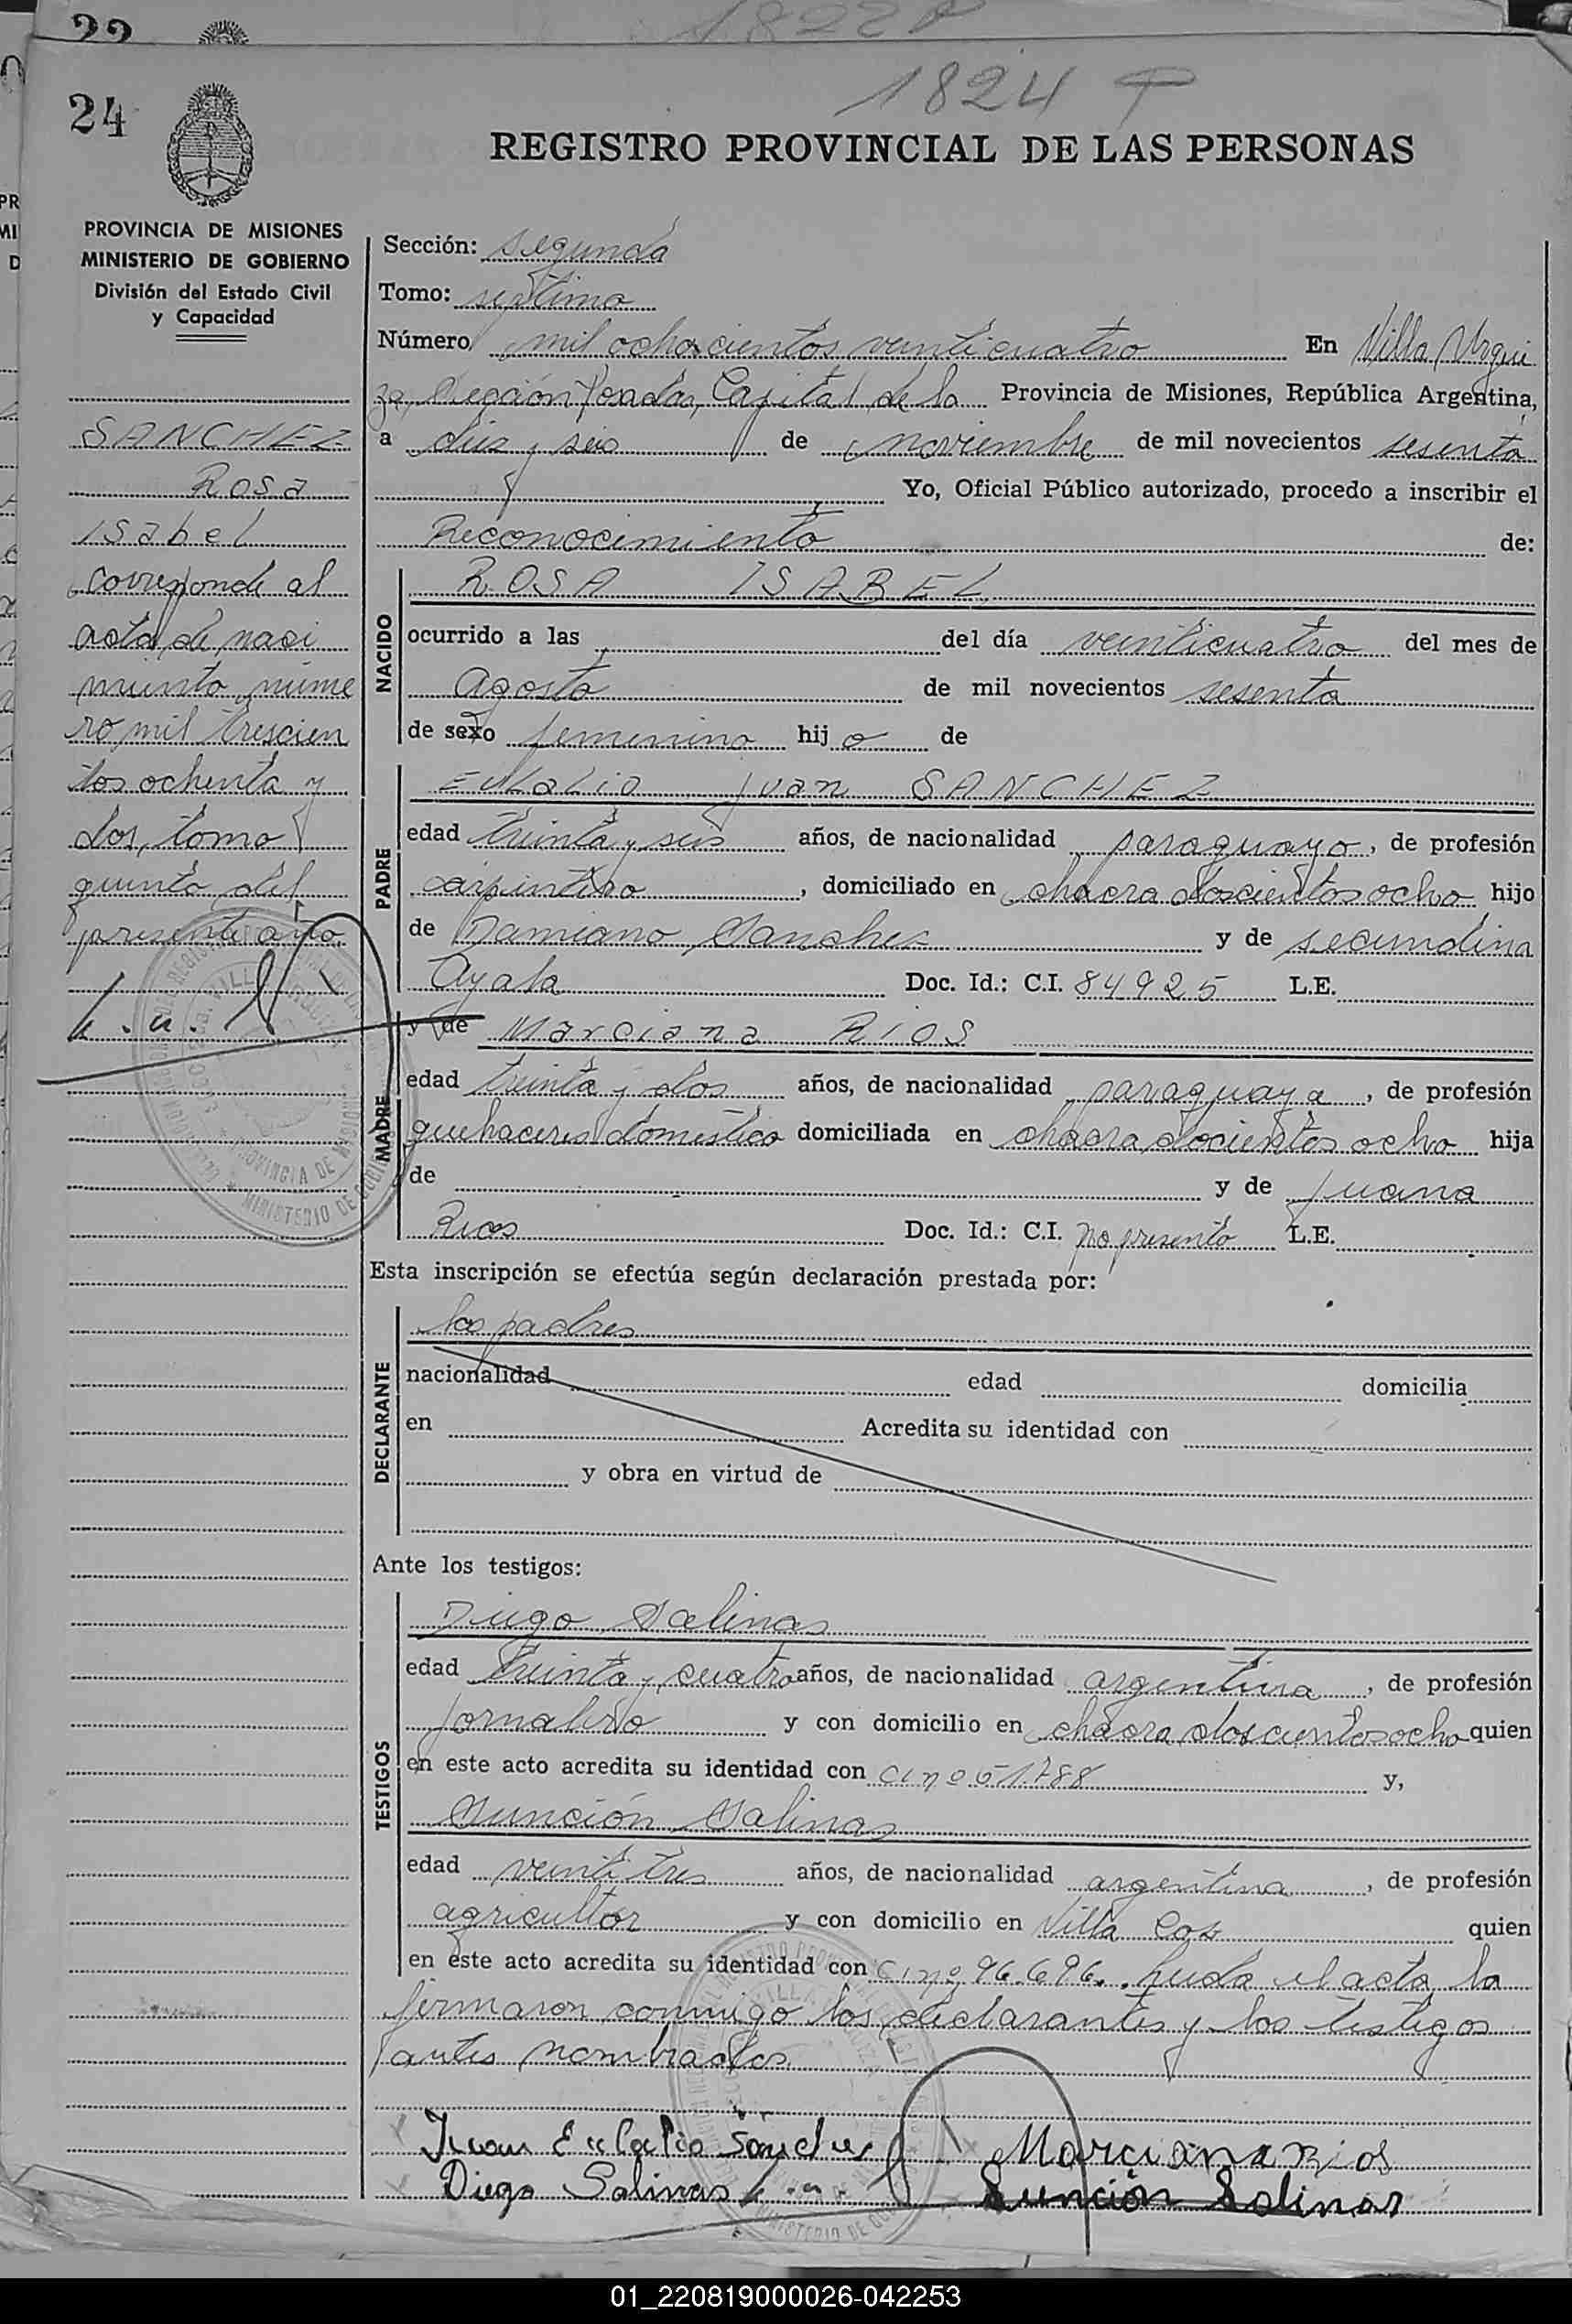 22
1822 P
1824 P
24
REGISTRO PROVINCIAL DE LAS PERSONAS
PROVINCIA DE MISIONES
MINISTERIO DE GOBIERNO
División del Estado Civil
y Capacidad
SANCHEZ
Rosa
Isabel
corresponde al
acta de naci
miento núme
ro mil trescien
tos ochenta y
dos, tomo
quinto del
presente año
Sección: segunda
Tomo: septimo
Número mil ochocientos veinticuatro En Villa Urqui
za, Sección Posadas, Capital de la Provincia de Misiones, República Argentina,
a diez y seis de noviembre de mil novecientos sesenta
Yo, Oficial Público autorizado, procedo a inscribir el
Reconocimiento de:
NACIDO
ROSA ISABEL
ocurrido a las del día veinticuatro del mes de
Agosto de mil novecientos sesenta
de sexo femenino hij a de
PADRE
Eulalio Juan SANCHEZ
edad treinta y seis años, de nacionalidad paraguayo, de profesión
carpintero, domiciliado en chacra doscientos ocho hijo
de Damiano Sanchez y de secundina
Ayala Doc. Id.: C.I. 84925 L.E.
MADRE
y de Marciana RIOS
edad treinta y dos años, de nacionalidad paraguaya, de profesión
quehaceres domestico domiciliada en chacra docientos ocho hija
de y de Juana
Rios Doc. Id.: C.I. no presento L.E.
Esta inscripción se efectúa según declaración prestada por:
DECLARANTE
los padres
nacionalidad edad domicilia
en Acredita su identidad con
y obra en virtud de
Ante los testigos:
TESTIGOS
Diego Salinas
edad treinta y cuatro años, de nacionalidad argentina, de profesión
jornalero y con domicilio en chacra doscientos ocho quien
en este acto acredita su identidad con CI nº 51788 y,
Sunción Salinas
edad veintitres años, de nacionalidad argentina, de profesión
agricultor y con domicilio en Villa quien
en este acto acredita su identidad con CI nº 96.696. Leida el acta, la
firmaron conmigo los declarantes y los testigos
antes nombrados.
Juan Eulalio Sanches Marciana Rios
Diego Salinas Sunción Salinas
01_220819000026-042253